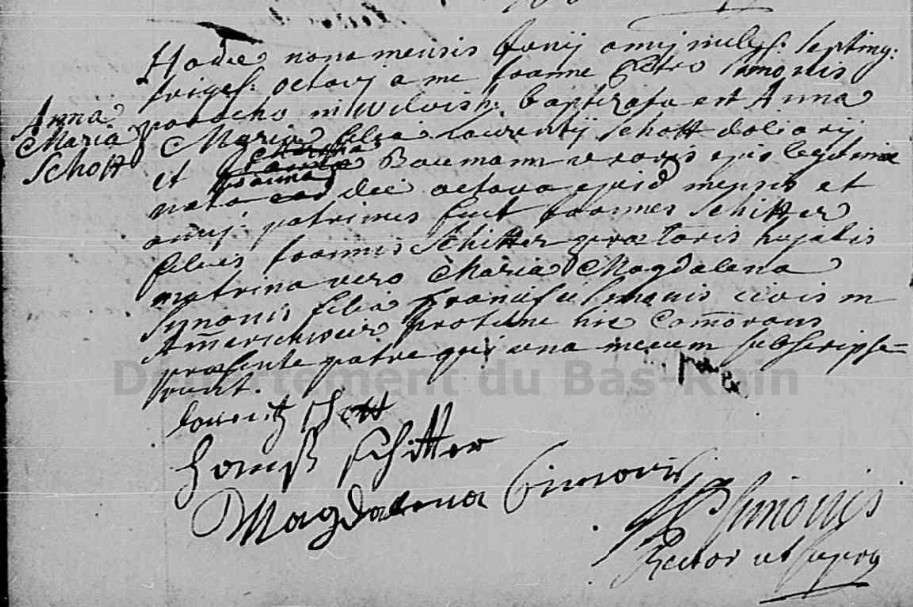 Hodie nona mensis Junij anni milles: septing:
triges: octavi a me Joanne Petro Simonis
parocho in Wilvish: baptizata est Anna
Maria filia Laurentij Schott doliarij
et Joanna Baumann uxoris ejus legitimae
nata die octava ejusd mensis et
anni: patrinus fuit Joannes Schitter
filius Joannis Schitter praetoris hujatis
matrina vero Maria Magdalena
Synonis filia Francisci Simonis civis in
Amerschweir pro tunc hic Comorans
praesente patre qui una mecum subscripse=
runt.
Anna
Maria
Schott
Lorentz Schott
Hanß Schitter
Magdalena Simonis
JP Simonis
Rector ut supra
Département du Bas-Rhin